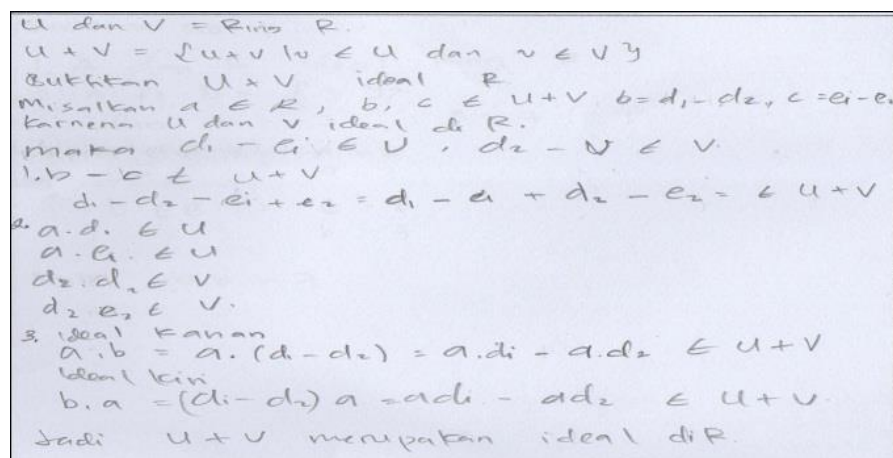 U dan V = Ring R.
U + V = {u+v | u ∈ U dan v ∈ V}
Buktikan U + V ideal R
Misalkan a ∈ R, b, c ∈ U+V b=d₁-d₂, c=e₁-e₂
Karnena U dan V ideal di R.
maka d₁ - e₁ ∈ U, d₂ - V ∈ V.
1. b - c ∈ U+V
d₁ - d₂ - e₁ + e₂ = d₁ - e₁ + d₂ - e₂ = ∈ U+V
2. a.d₁ ∈ U
a.e₁ ∈ U
d₂.d₂ ∈ V
d₂ e₂ ∈ V.
3. ideal kanan
a.b = a.(d₁-d₂) = a.d₁ - a.d₂ ∈ U+V
ideal kiri
b.a = (d₁-d₂) a = ad₁ - ad₂ ∈ U+V.
Jadi U + V merupakan ideal di R.